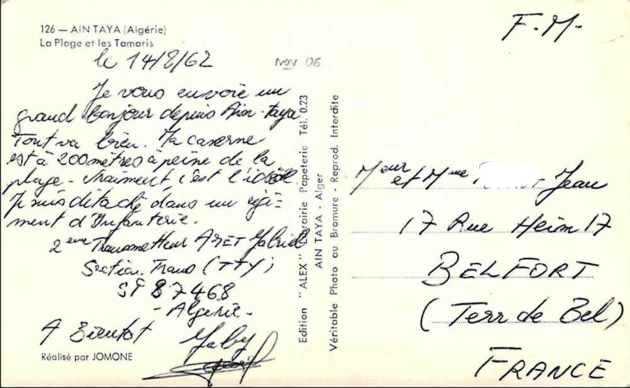 126 — AIN TAYA (Algérie)
La Plage et les Tamaris
le 14/8/62
NOV 06
Je vous envoie un
grand bonjour depuis Aïn-taya
Tout va bien. Ma caserne
est à 200 mètres à peine de la
plage. Vraiment c'est l'idéal
Je suis détaché dans un régi-
ment d'Infanterie.
2eme Transmetteur AZET Gabriel
Section Trans (TTY)
SP 87468
- Algérie -
A Bientot Gaby
Réalisé par JOMONE
Edition "ALEX" Librairie Papeterie Tél. 0.23
AIN TAYA - Alger
Véritable Photo au Bromure - Reprod. Interdite
F.M-
Meur et Mme Jean
17 Rue Heim 17
BELFORT
(Terr de Bel)
FRANCE